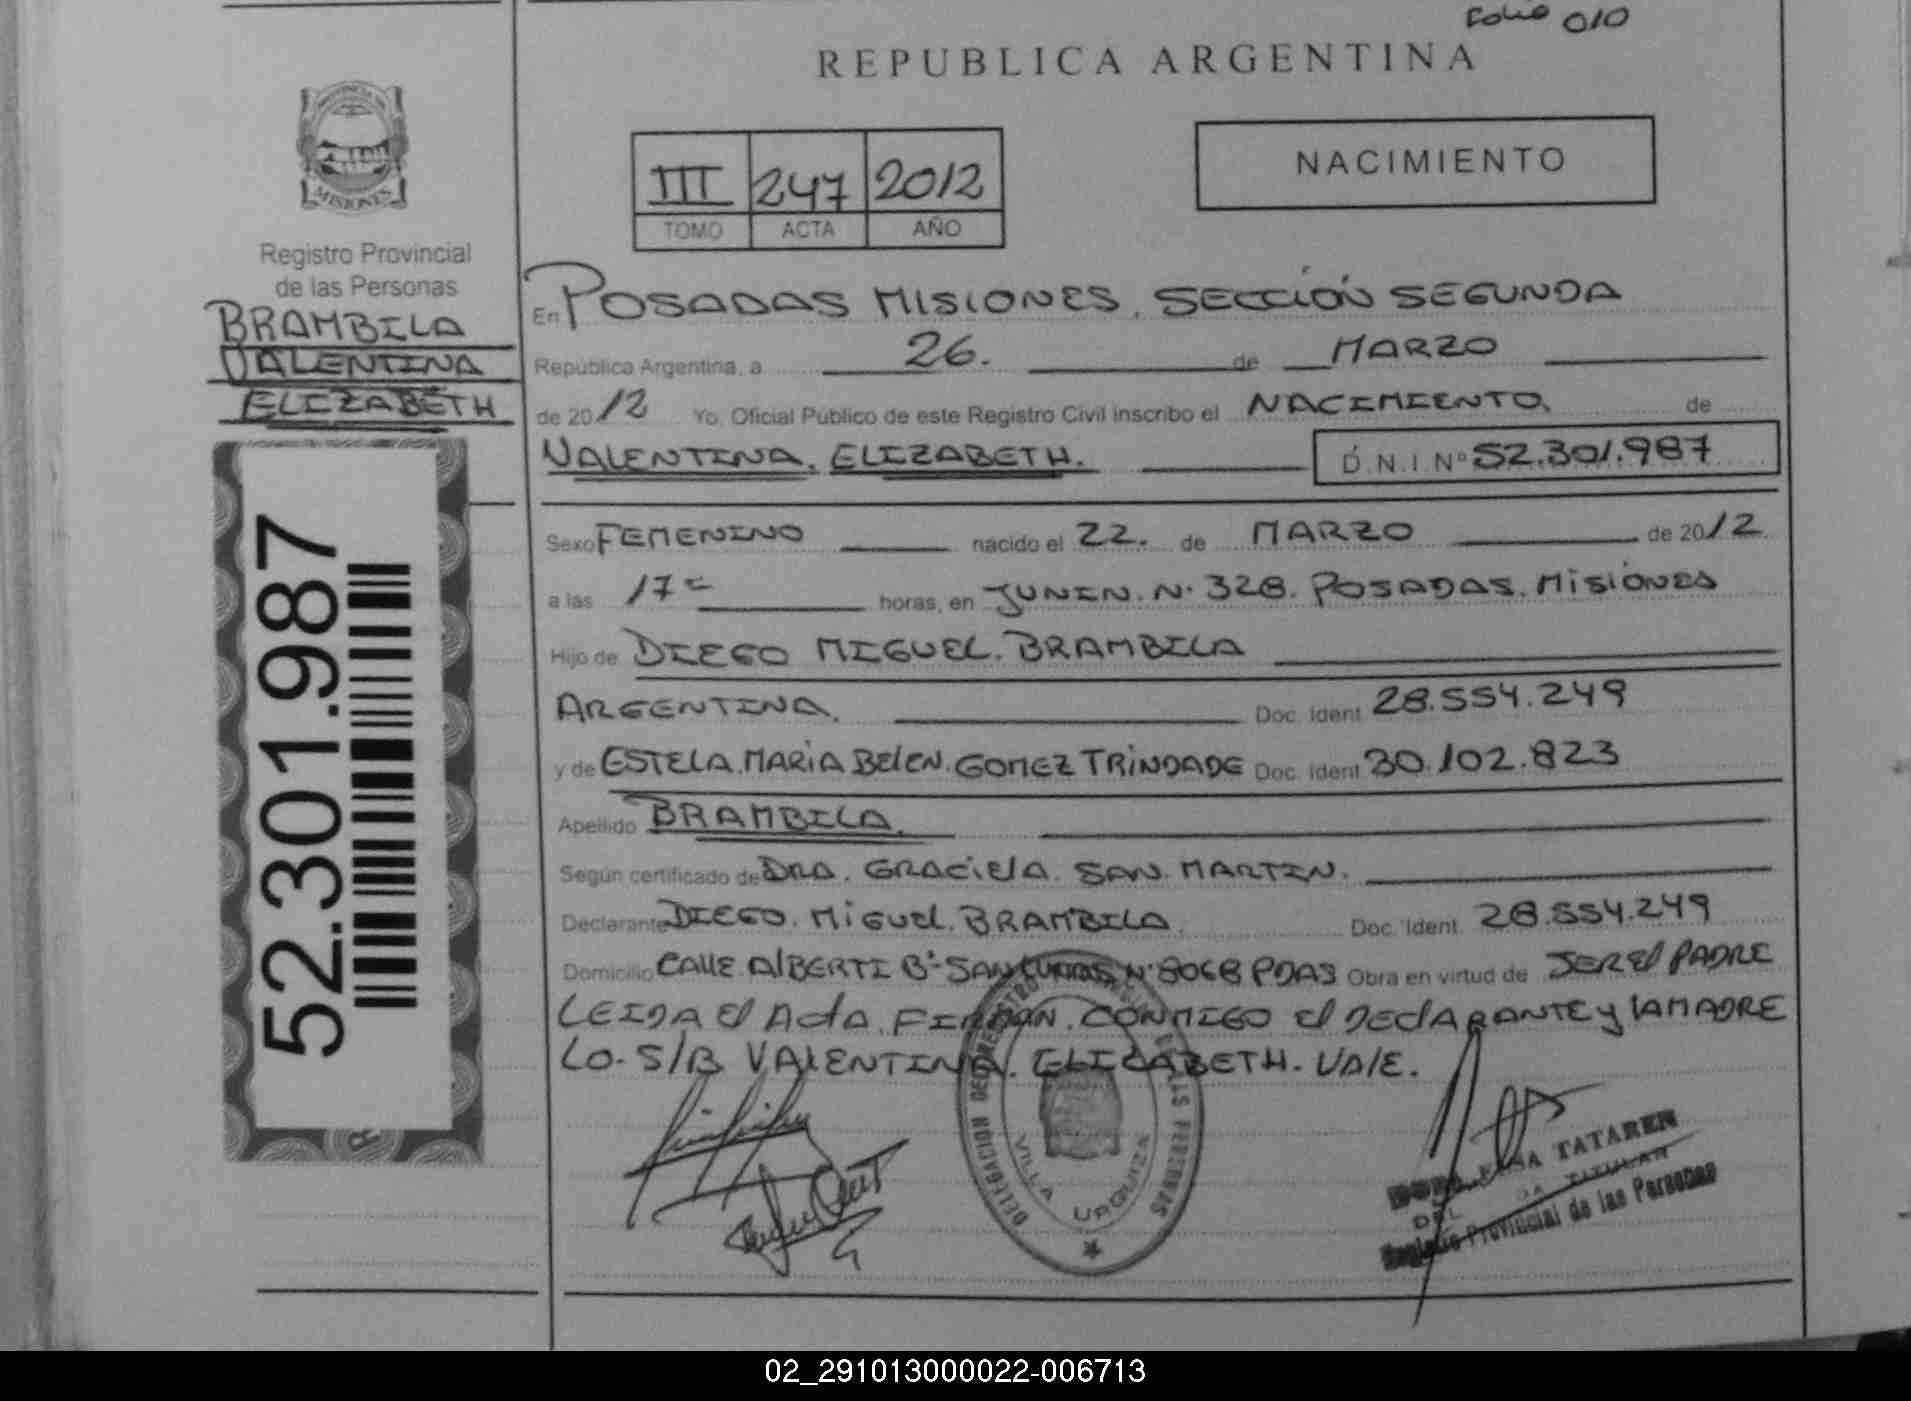 Folio 010
REPUBLICA ARGENTINA
PROVINCIA DE
MISIONES
Registro Provincial
de las Personas
BRAMBILA
VALENTINA
ELIZABETH
52.301.987
III 247 2012
TOMO ACTA AÑO
NACIMIENTO
En POSADAS MISIONES, SECCIÓN SEGUNDA
República Argentina, a 26. de MARZO
de 2012 Yo, Oficial Público de este Registro Civil inscribo el NACIMIENTO, de
VALENTINA, ELIZABETH. D.N.I. Nº 52.301.987
Sexo FEMENINO nacido el 22. de MARZO de 2012.
a las 17 horas, en JUNIN. Nº 328. POSADAS. MISIONES
Hijo de DIEGO MIGUEL. BRAMBILA
ARGENTINA. Doc. Ident. 28.554.249
y de ESTELA. MARIA BELEN. GOMEZ TRINDADE Doc. Ident. 30.102.823
Apellido BRAMBILA.
Según certificado de DRA. GRACIELA. SAN. MARTIN.
Declarante DIEGO. MIGUEL. BRAMBILA. Doc. Ident. 28.554.249
Domicilio CALLE ALBERTI Bº SAN Nº 8068 PDAS Obra en virtud de SER EL PADRE
LEIDA El ActA, FIRMAN. CONMIGO El DEClARANTE y lA MADRE
LO. S/B VALENTINA. ELIZABETH. VALE.
DELEGACION DEL REGISTRO PROVINCIAL DE LAS PERSONAS
VILLA URQUIZA
TATAREN
TITULAR
Registro Provincial de las Personas
02_291013000022-006713